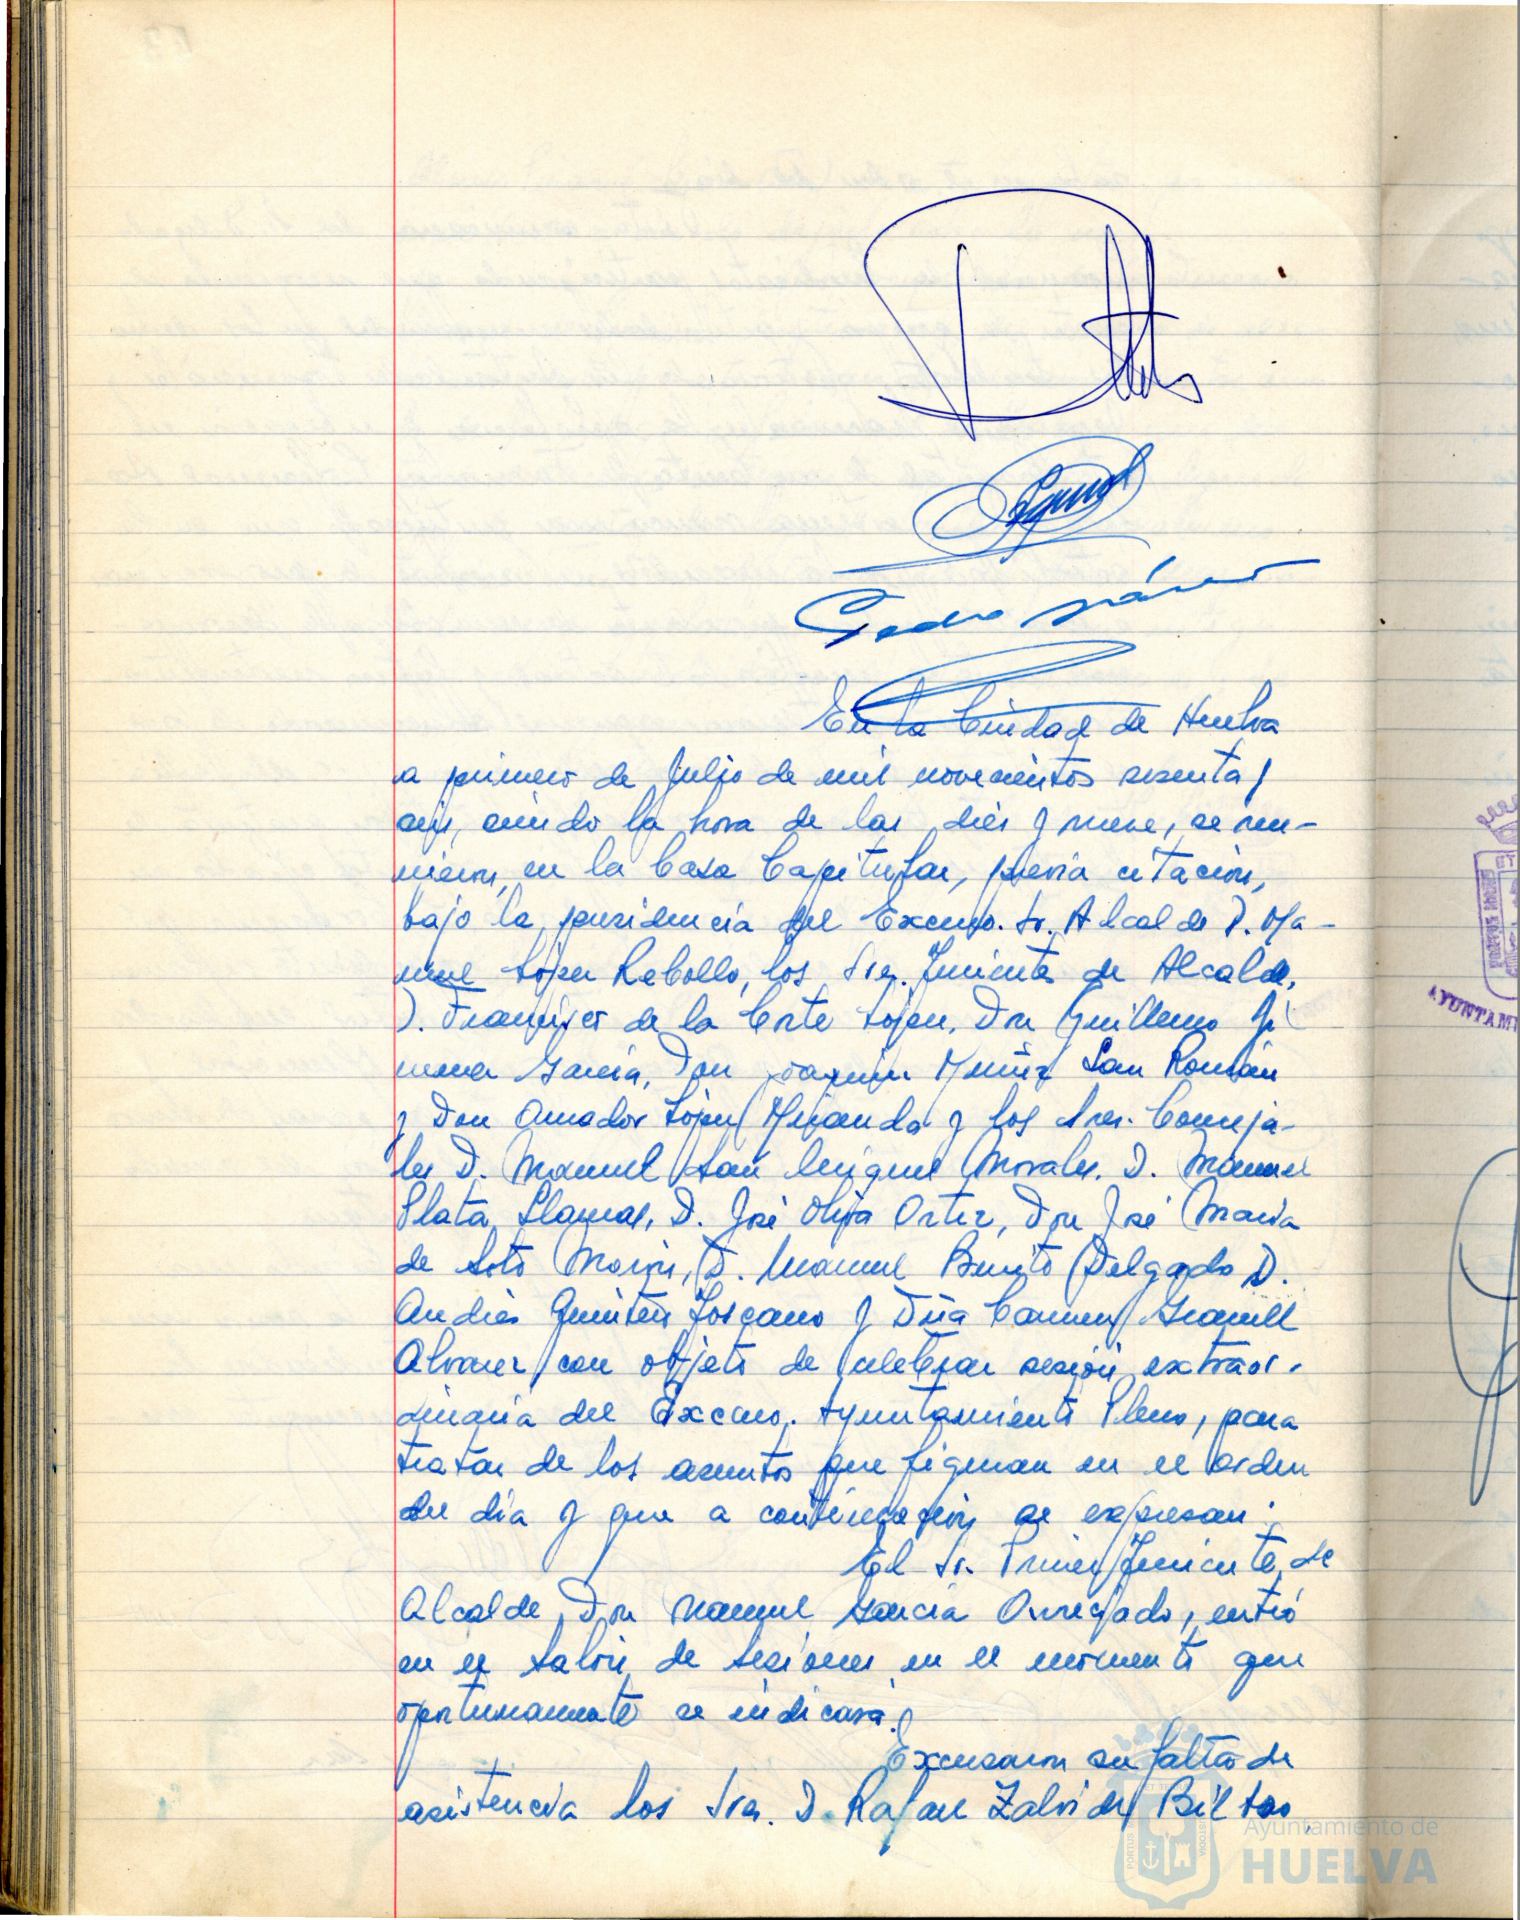 Pedro
En la Ciudad de Huelva
a primero de Julio de mil novecientos sesenta y
seis, siendo la hora de las dies y nueve, se reu-
nieron, en la Casa Capitular, previa citación,
bajo la presidencia del Excmo. Sr. Alcalde D. Ma-
nuel López Rebollo, los Sres. Tenientes de Alcalde,
D. Francisco de la Corte López, Don Guillermo Ji
menez García, Don Joaquin Muñiz San Román
y Don Amador López Miranda y los Sres. Conceja-
les D. Manuel San Miguel Morales, D. Manuel
Plata Llamas, D. José Oliva Ortiz, Don José Maria
de Soto Morón, D. Manuel Benito Delgado D.
Andrés Quintero Toscano y Dña Carmen
Alvarez con objeto de celebrar sesión extraor-
dinaria del Excmo. Ayuntamiento Pleno, para
tratar de los asuntos que figuran en el orden
del dia y que a continuación se expresan.
El Sr. Primer Teniente de
Alcalde, Don Manuel García
entró
en el Salón de Sesiones en el momento que
oportunamente se indicará.
Excusaron su falta de
asistencia los Sres. D. Rafael Zalvide Bilbao,
Ayuntamiento de
HUELVA